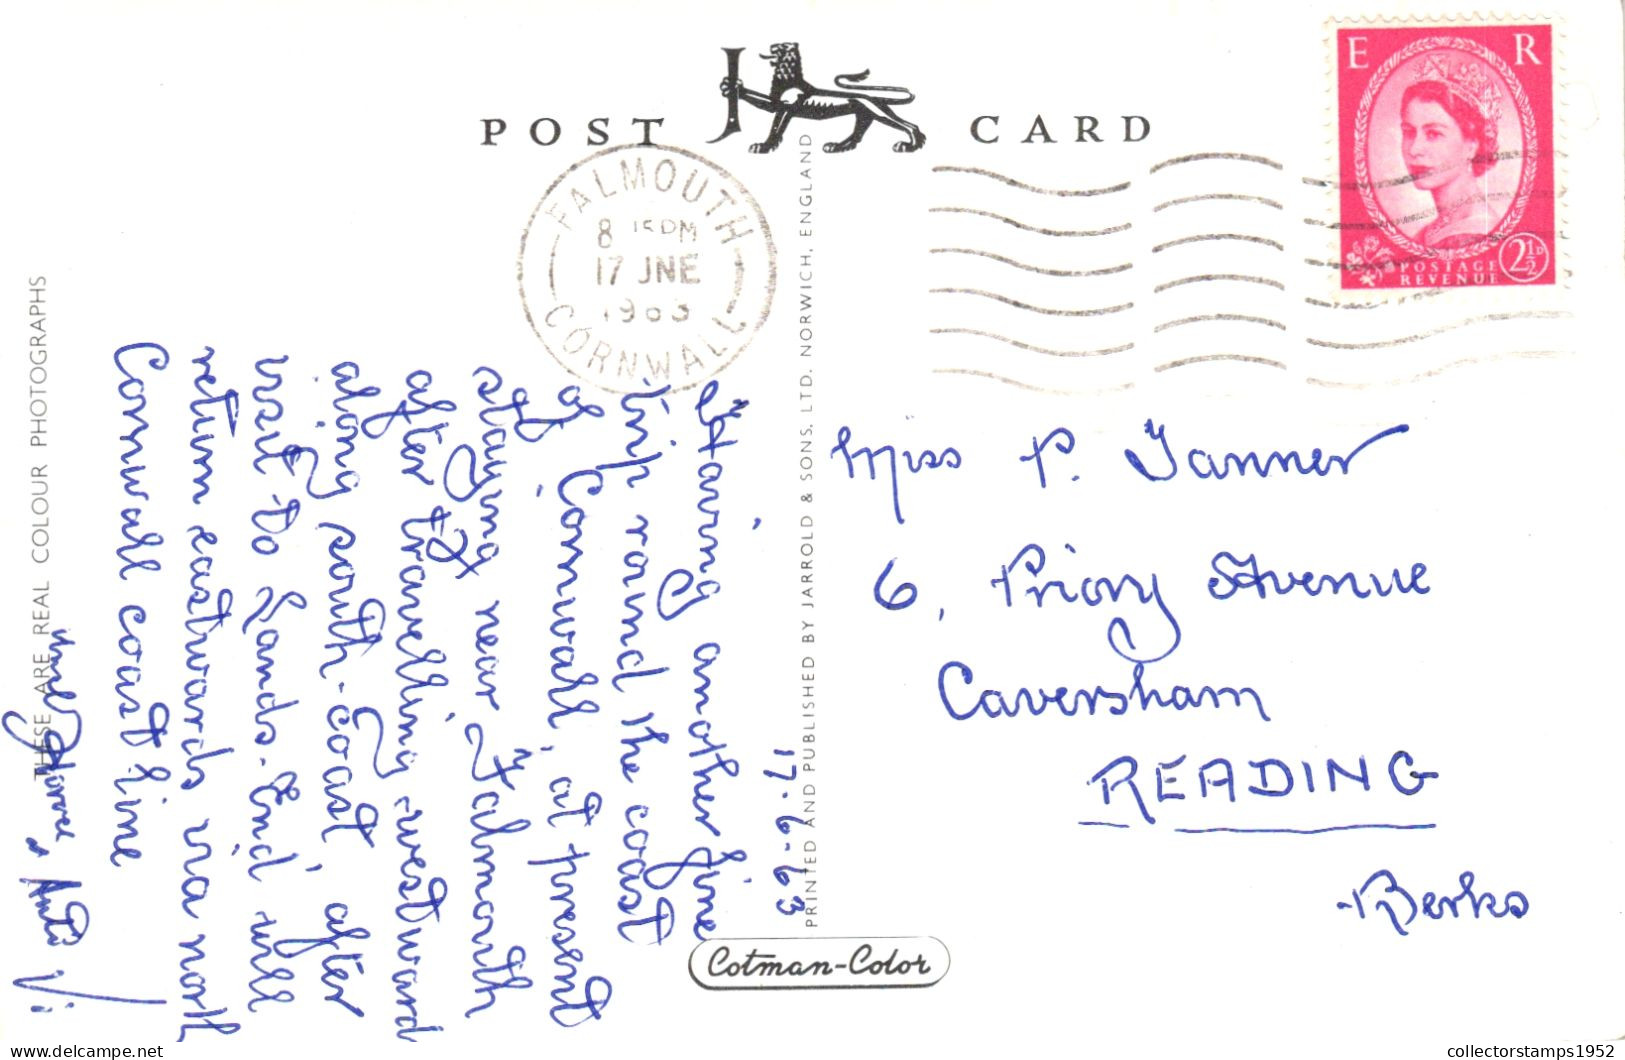 POST CARD
E R
POSTAGE
REVENUE
2½D
FALMOUTH
8 15PM
17 JNE
1963
CORNWALL
THESE ARE REAL COLOUR PHOTOGRAPHS
PRINTED AND PUBLISHED BY JARROLD & SONS, LTD. NORWICH, ENGLAND
17.6.63
Having another fine
trip round the coast
of Cornwall, at present
staying near Falmouth
after travelling westward
along south-coast, after
visit to Lands-End will
return eastwards via north
Cornwall coast line
Uncle & Auntie Vi
Miss P. Tanner
6, Priory Avenue
Caversham
READING
Berks
Cotman-Color
collectorstamps1952